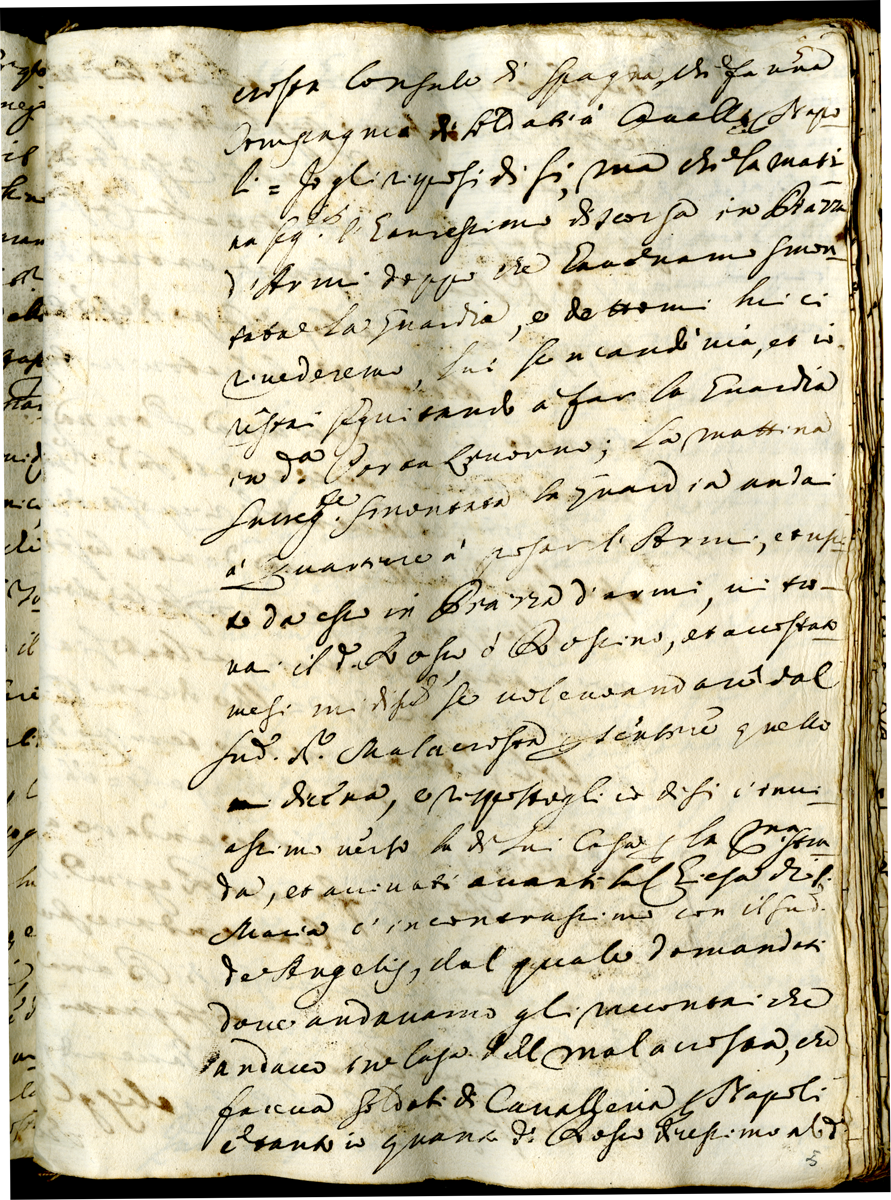 crosta Console di Spagna, che fa una
Compagnia di soldati à Cavallo p Napo-
li = Io gli risposi di si, ma che la mati-
na seg.te l'haveressimo discorsa in Piazza
d'Armi doppo che havevamo smon-
tata la Guardia, e dettomi lui ci
rivederemo, lui se n'andò via, et io
restai seguitando à far la Guardia
in d.a Porta Livorno; La mattina
susseg.te smontata la guardia andai
à Quartiere à posar l'Armi, et usci-
to da esso in Piazza d'armi, vi tro-
vai il d.o Rosso ò Rossino, et accostato
mesi mi disse se volevo andare dal
sud.o Malacrosta p sentire quello
diceva, e rispostogli io di si c'invi-
assimo verso la di lui Casa p la
da, et arrivati avanti la Chiesa di S.
Maria c'incontrassimo con il sud.o
de Angelis, dal quale domandati
dove andavamo gli raccontai che
andavo in casa del Malacrosta, che
faceva soldati di Cavalleria p Napoli
e tanto io quanto di Rosso dicessimo al d.o
5